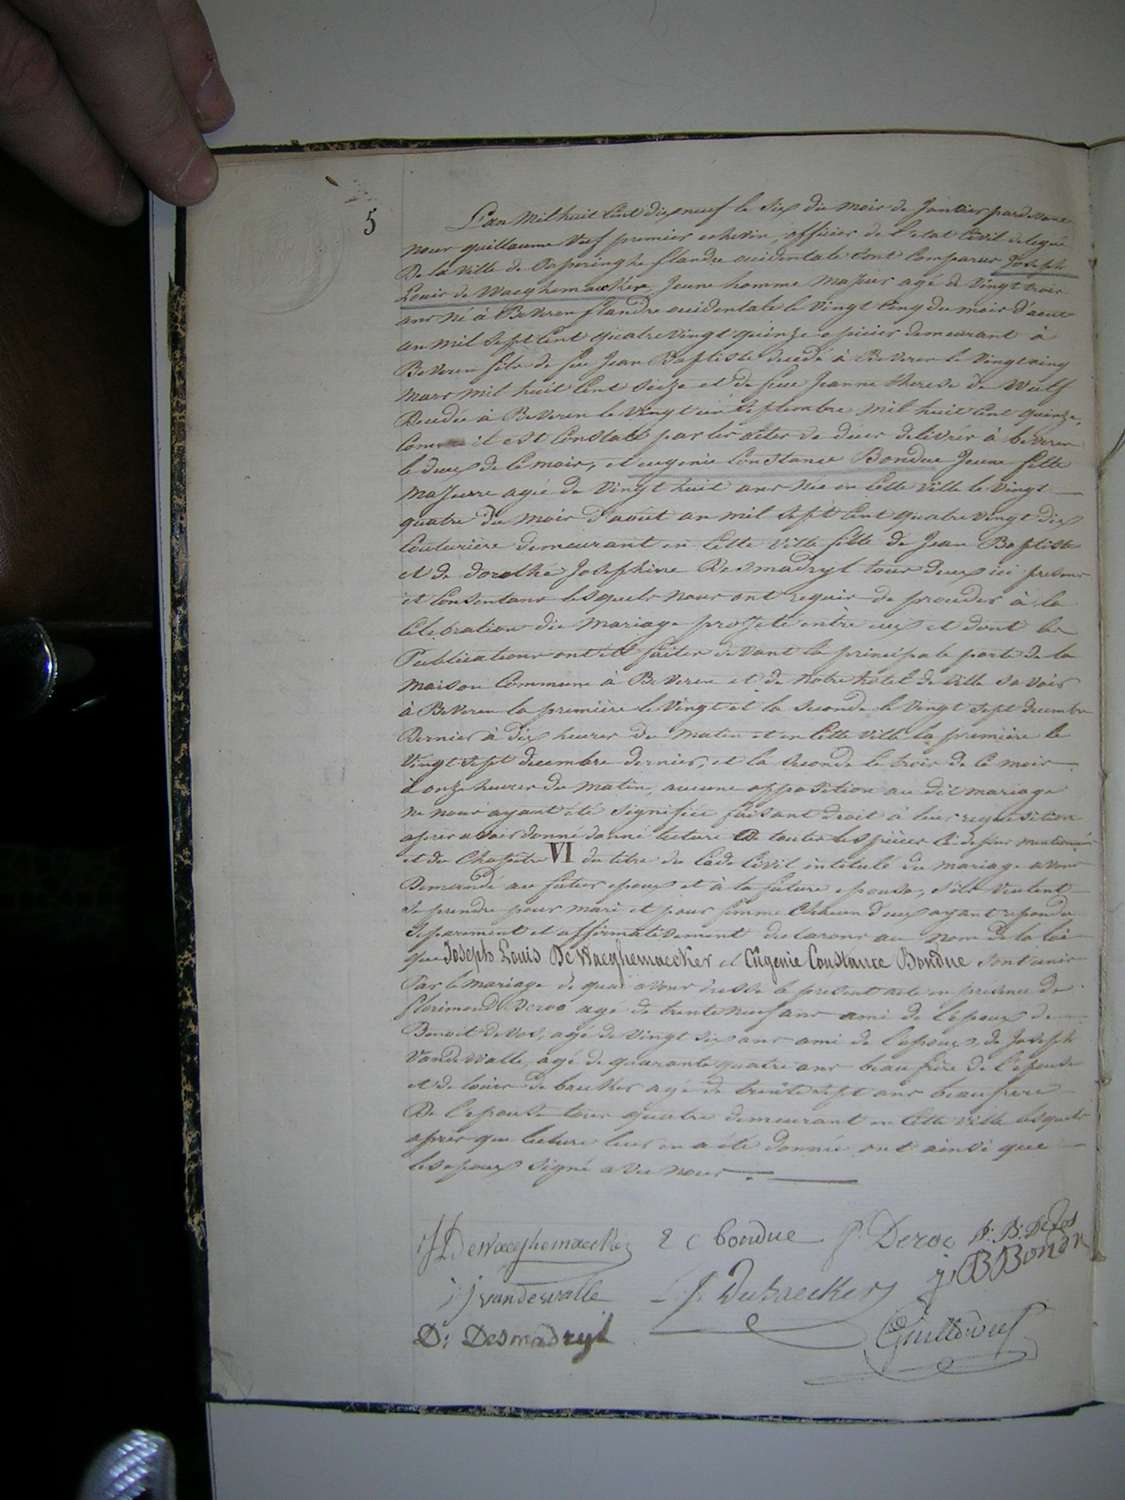 5
L'an Mil huit Cent dix neuf le Six du mois de Janvier par devant
nous guillaume Vuf premier echevin, officier de l'etat Civil delegué
De la Ville de Poperinghe flandre occidentale sont Comparus Joseph
Louis de Waeghemaecker Jeune homme Majeur agé de Vingt trois
ans Né à Beveren flandre occidentale le Vingt Cinq du mois d'aout
an mil Sept Cent quatre vingt quinze epicier demeurant à
Beveren fils de feu Jean Baptiste decedé à Beveren le Vingt cinq
Mars mil huit Cent Seize et de feue Jeanne therese de Wulf
Decedée à Beveren le Vingt Septembre mil huit Cent quinze,
Comme il est Constaté par les actes de deces delivrés à beveren
le deux de Ce mois, et eugenie Constance Bondue Jeune fille
Majeure agée de Vingt huit ans Née en Cette Ville le Vingt
quatre du mois d'aout an mil Sept Cent quatre Vingt dix
Couturière demeurant en Cette Ville fille de Jean Baptiste
et de dorothé Josephine Desmadryl tous deux ici presens
et Consentans lesquels nous ont requis de proceder à la
Célébration du Mariage projeté entre eux et dont les
Publications ont été faites devant la principale porte de la
Maison Commune à Beveren et de notre hôtel de Ville Savoir
à Beveren la première le Vingt et la Seconde le Vingt Sept decembre
Dernier à dix heures du Matin et en Cette Ville la première le
Vingt Sept decembre dernier, et la Seconde le trois de Ce mois
à onze heures du Matin, aucune opposition au dit mariage
ne nous ayant été Signifiée faisant droit à leur requisition
après avoir donné donné lecture De toutes les pièces Ci dessus mentionnées
et du Chapitre VI du titre du Code Civil intitulé du mariage avons
Demandé au futur epoux et à la future epouse, S'ils Veulent
Se prendre pour mari et pour femme Chacun d'eux ayant repondu
Separement et affirmativement declarons au nom de la loi
que Joseph Louis De Waeghemaecker et Eugenie Constance Bondue Sont unis
Par le mariage de quoi avons dressé le present acte en presence de
florimond Deroo agé de trente neuf ans ami de l'epoux de
Benoit de Vos, agé de Vingt Six ans ami de l'epoux de Joseph
Vande Walle, agé de quarante quatre ans beau frère de l'epouse
et de louis de baecker agé de trente Sept ans beau frère
De l'epouse tous quatre demeurant en Cette Ville lesquels
après que lecture leur en a été donnée ont ainsi que
les epoux Signé avec nous
JL DeWaeghemaecker E C bondue F. Deroo B. Devos
j j vandewalle L J DeBaecker j. B Bondue
D: Desmadryl Guill Vuf